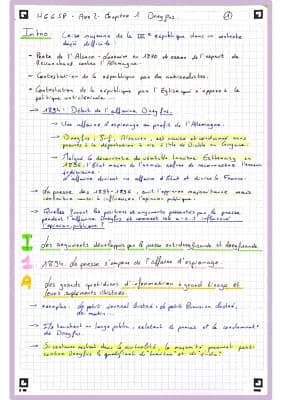 HGGSP - Axe 2 - Chapitre 1 Dreyfus. 1
Intro: Crise majeure de la IIIe République dans un contexte
déjà difficile
- Perte de l'Alsace-Lorraine en 1870 et essor de l'esprit de
Revanchard contre l'Allemagne.
- Contestation de la république par des
- Contestation de la république par l'Eglise qui s'oppose à la
politique anticléricale...
→ 1894: Début de l'affaire Dreyfus.
→ Une affaire d'espionnage au profit de l'Allemagne.
→ Dreyfus, Juif, Alsacien, est accusé et condamné sans
preuves à la déportation à vie à l'île du Diable en Guyane.
→ Malgré la découverte du véritable Esterhazy en
1896, l'État major de l'armée refuse de reconnaître l'erreur
judiciaire.
L'affaire devient une affaire d'État et divise la France.
→ La presse, dès 1894-1896, suit l'opinion majoritaire mais
contribue aussi à influencer l'opinion publique.
→ Quelles furent les positions et arguments présentés par la presse
pendant l'affaire Dreyfus et comment a-t-il influencé
l'opinion publique?
I Les arguments développés par la presse antidreyfusarde et dreyfusarde.
1 1894. La presse s'empare de l'affaire d'espionnage.
A Les grands quotidiens d'information à grand tirage et
leurs suppléments illustrés.
→ exemples: Le petit journal illustré, Le petit Parisien illustré,
Le matin...
→ Ils touchent un large public, relatent le procès et la condamnation
de Dreyfus.
→ Si certains restent dans la neutralité, la majorité prennent parti
contre Dreyfus le qualifiant de "traître" et de "Judas"